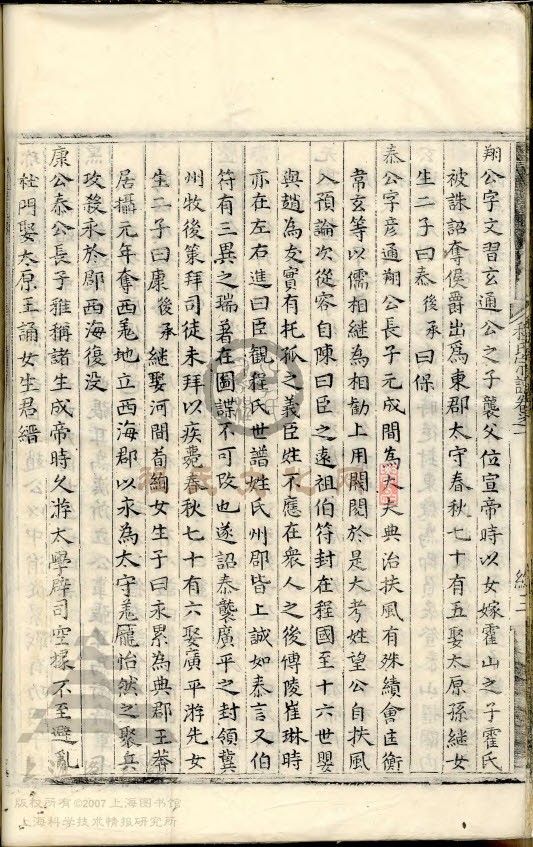 翔公字文習玄通公之子襲父位宣帝時以女嫁霍山之子霍氏
被誅詔奪侯爵出為東郡太守春秋七十有五娶太原孫継女
生二子曰泰後承曰保
泰公字彦通翔公長子元成間為大夫典治扶風有殊績會匡衡
韋玄等以儒相継為相勸上用閥閱於是大考姓望公自扶風
入預論次從容自陳曰臣之遠祖伯符封在程國至十六世嬰
與趙為友實有托孤之義臣姓不應在衆人之後傅陵崔琳時
亦在左右進曰臣観程氏世譜姓氏州郡皆上誠如泰言又伯
符有三異之瑞著在圖諜不可改也遂詔泰襲廣平之封領冀
州牧後策拜司徒未拜以疾薨春秋七十有六娶廣平游先女
生二子曰康後承継娶河間荀緬女生子曰永累為典郡王莽
居攝元年奪西羌地立西海郡以永為太守羌龐怡然之聚兵
攻殺永於郡西海復没
康公泰公長子雅稱諸生成帝時久游太學辟司空掾不至避亂
杜門娶太原王誦女生君縉
程氏文化网
版权所有©2007 上海图书馆
上海科学技术情报研究所